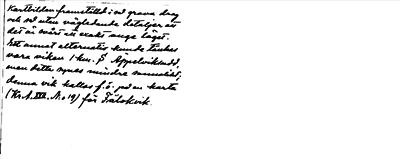 Kartbilden framställd i så grova drag
och så utan vägledande detaljer att
det är svårt att exakt ange läget.
Ett annat alternativ kunde tänkas
vara viken 1 km. S Äppelviksudd,
men detta synes mindre sannolikt,
denna vik kallas f.ö. på en karta
(Kr.A. XIII. No 19) för Fälökvik.